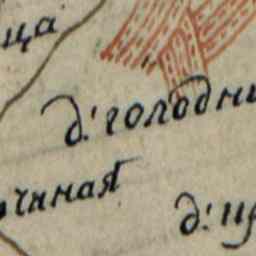 ца
д: голодни
чиная
д: и